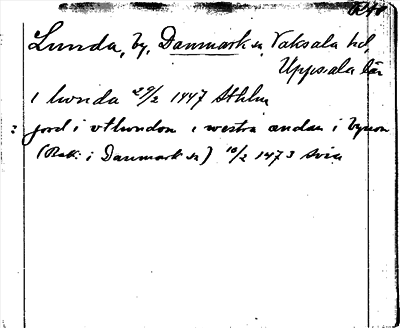 Lunda, by, Danmark sn, Vaksala hd,
Uppsala län
i lwnda 29/2 1447 Sthlm
jord i vtlwndom i westra ændan i bynom
(Rek. i Danmark sn) 10/2 1473